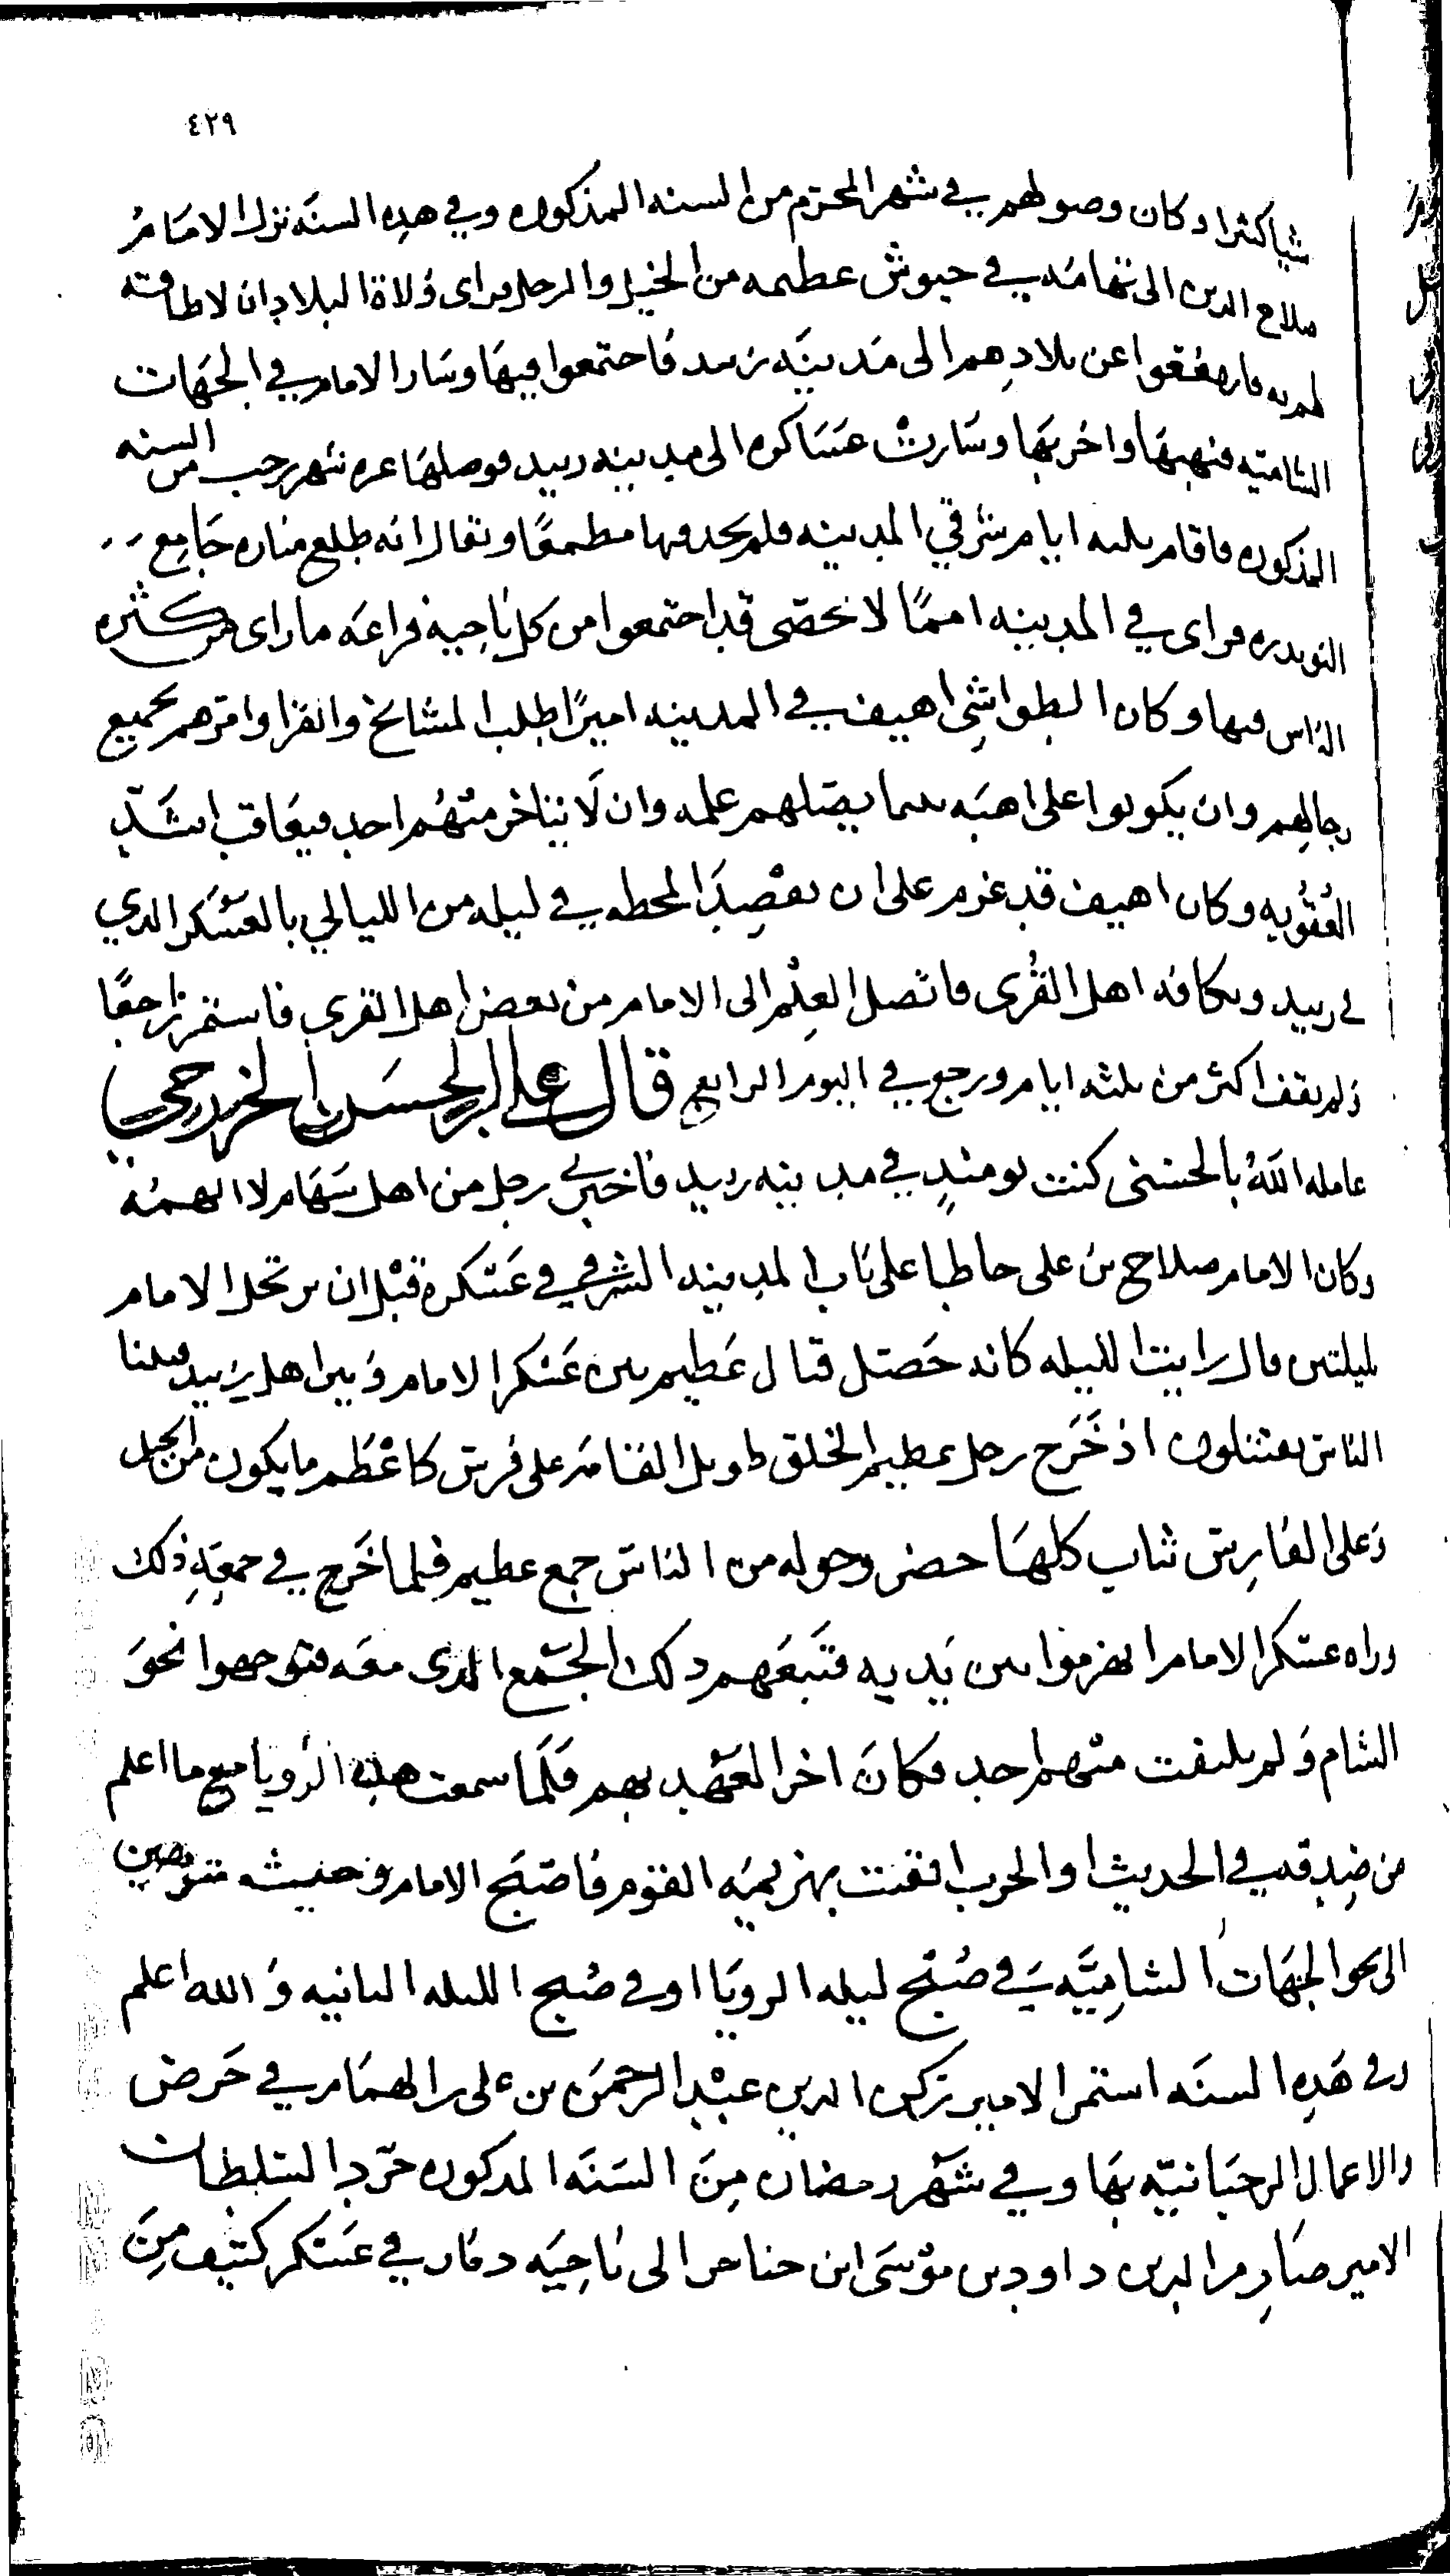 ٤٢٩
شيا كثيرا وكان وصولهم في شهر المحرم من السنه المذكوره وفي هذه السنه نزل الامام
صلاح الدين الى تهامه في جيوش عظيمه من الخيل والرجل وراى ولاة البلاد ان لا طاقه
لهم به فارتفعوا عن بلادهم الى مدينه زبيد فاجتمعوا فيها وسار الامام في الجهات
الشاميه فنهبها واخربها وسارت عساكره الى مدينه زبيد فوصلها غره شهر رجب من السنه
المذكوره فاقام ثلثه ايام شرقي المدينه فلم يجد فيها مطمعًا ويقال انه طلع مناره جامع
النويدره فراى في المدينه امما لا تحصى قد اجتمعوا من كل ناحيه فراعه ما راى من كثره
الناس فيها وكان الطواشي اهيف في المدينه اميرًا طلب المشائخ والنقرا وامرهم بجميع
رجالهم وان يكونوا على اهبه لما يصلهم علمه وان لا يتاخر منهم احد فيعاقب اشد
العقوبه وكان اهيف قد عزم على ان يقصد المحطه في ليله من الليالي بالعسكر الذي
في زبيد وبكافه اهل القرى فاتصل العلم الى الامام من بعض اهل القرى فاستمر راجعًا
ولم يقف اكثر من ثلثه ايام ورجع في اليوم الرابع قال على بن الحسن الخزرجي
عامله الله بالحسنى كنت يومئذٍ في مدينه زبيد فاخبرني رجل من اهل سهام لا اتهمه
وكان الامام صلاح بن على حاطا على باب المدينه الشرقي في عسكره قبل ان يرتحل الامام
بليلتين قال رايت الليله كانه حصل قتال عظيم بين عسكر الامام وبين اهل زبيد فبينا
الناس يقتتلون اذ خرج رجل عظيم الخلق طويل القامه على فرس كاعظم ما يكون من الخيل
وعلى الفارس ثياب كلها خضر وحوله من الناس جمع عظيم فلما خرج في جمعه ذلك
وراه عسكر الامام انهزموا بين يديه فتبعهم ذلك الجمع الذي معه فتوجهوا نحو
الشام ولم يلتفت منهم احد فكان اخر العهد بهم فلما سمعت هذه الرويا مع ما اعلم
من صدقه في الحديث والحرب ايقنت بهزيمه القوم فاصبح الامام وجيشه متوجهين
الى نحو الجهات الشاميه في صبح ليله الرويا او في صبح الليله الثانيه والله اعلم
وفي هذه السنه استمر الامير زكي الدين عبد الرحمن بن على بن الهمام في حرض
والاعمال الرحبانيه بها وفي شهر رمضان من السنه المذكوره جرد السلطان
الامير صارم الدين داود بن موسى ابن حناجر الى ناحيه ذمار في عسكر كثيف من